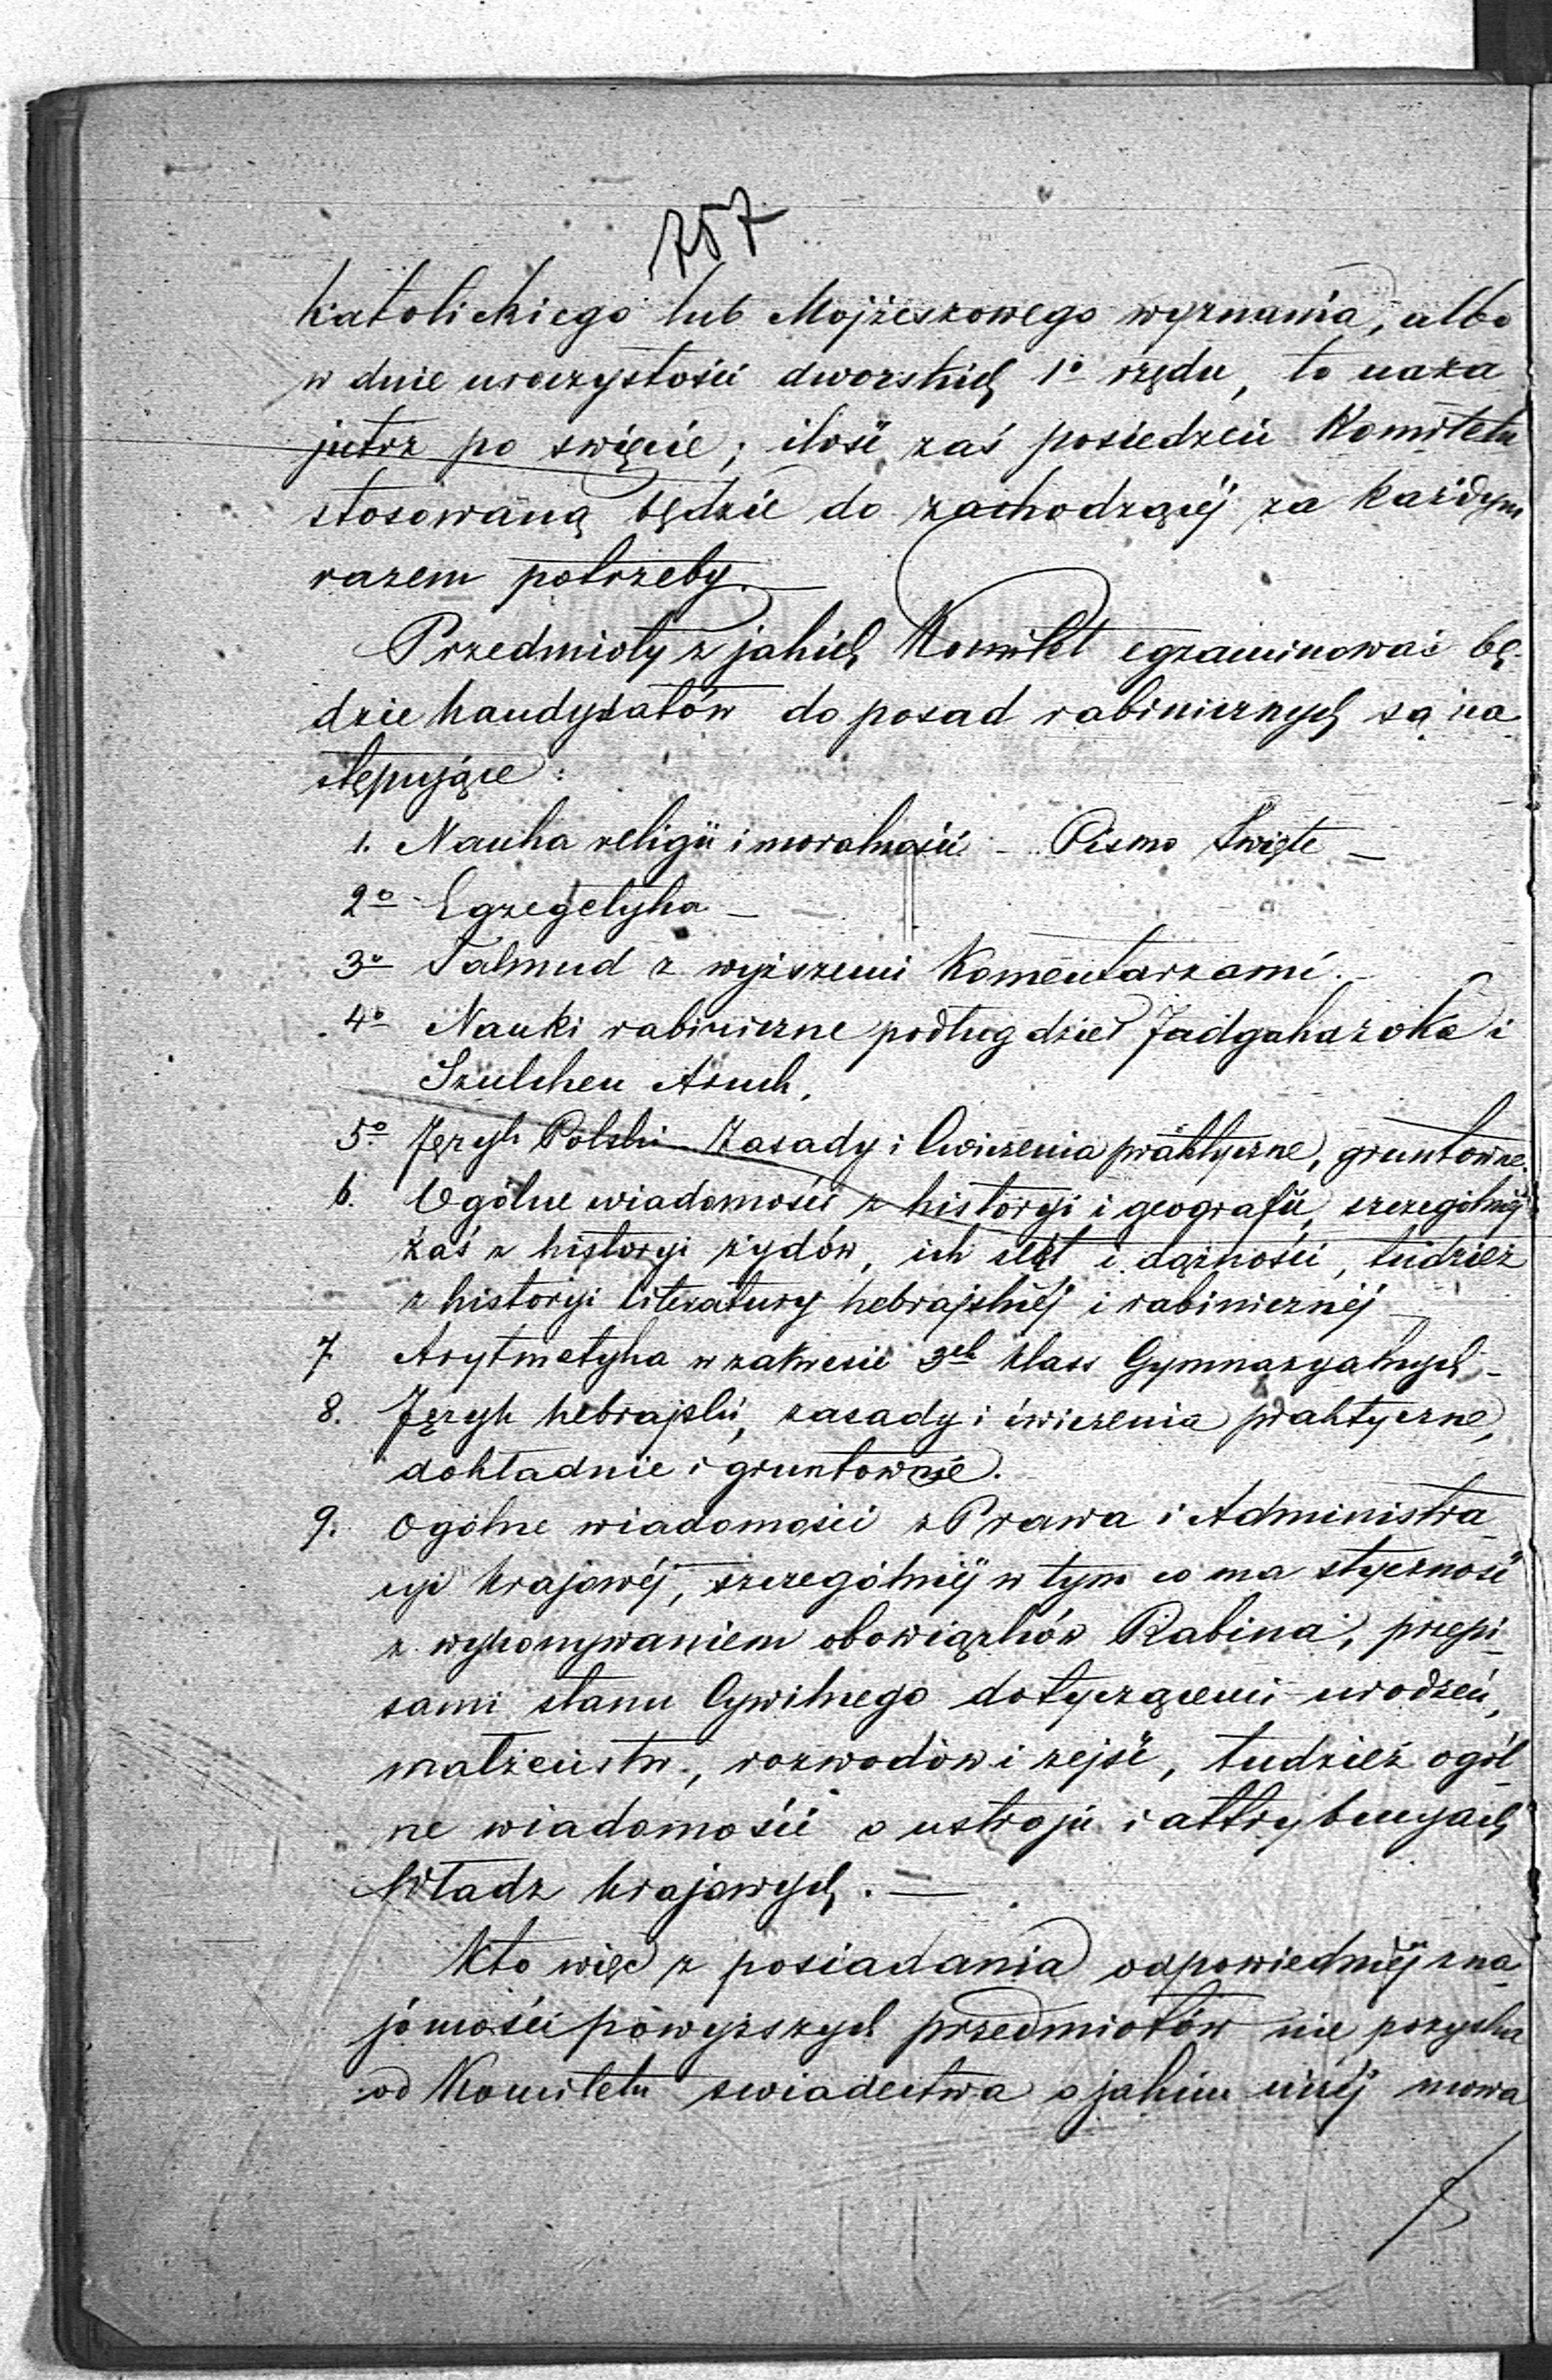 757
Katolickiego lub Mojżeszowego wyznania, albo
w dnie uroczystości dworskich 1o rzędu, to naza
jutrz po święcie; ilość zaś posiedzeń Komitetu
stosowaną będzie do zachodzącéj za każdym
razem potrzeby. —
Przedmioty z jakich Komitet egzaminować bę-
dzie kandydatów do posad rabinicznych są na
stępujące:
1. Nauka religii i moralności – Pismo Święte –
2o Egzegetyka –
3o Talmud z wyższemi Komentarzami. –
4o Nauki rabiniczne podług dzieł Jadgahazoka i
Szulchen Aruch.
5o Język Polski Zasady i Cwiczenia praktyczne, gruntowne.
6. Ogólne wiadomości z historyi i geografii, szczególniéj
zaś z historyi żydów, ich sekt i dążności, tudzież
z historyi literatury hebrajskiéj i rabinicznéj
7. Arytmetyka w zakresie 3ch klass Gymnazyalnych –
8. Język hebrajski, zasady i ćwiczenia praktyczne,
dokładnie i gruntownie.
9. Ogólne wiadomości z Prawa i Administra
cyi Krajowéj, szczególniéj w tym co ma styczność
z wykonywaniem obowiązków Rabina, przepi-
sami stanu Cywilnego dotyczącemi urodzeń,
małżeństw, rozwodów i zejść, tudzież ogól
ne wiadomości o ustroju i attrybucyach
Władz Krajowych. —
Kto więc z posiadania odpowiedniéj zna-
jomości powyższych przedmiotów nie pozyska
od Komitetu świadectwa o jakim niżéj mowa